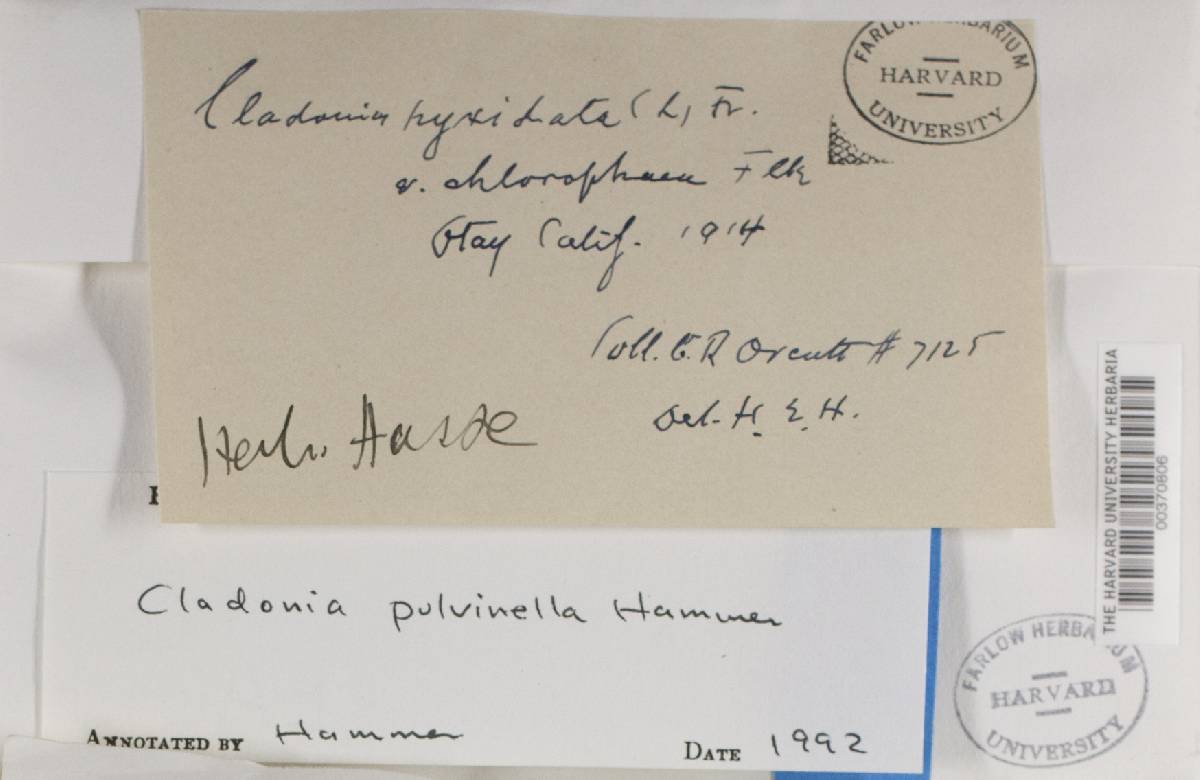 Cladonia pyxidata (L) Fr.
v. chlorophaea Flk
Otay Calif. 1914
Coll. C. R Orcutt # 7125
Det. H. E. H.
Herb. Hasse
FARLOW HERBARIUM
HARVARD
UNIVERSITY
Cladonia pulvinella Hammer
ANNOTATED BY Hammer
DATE 1992
THE HARVARD UNIVERSITY HERBARIA
00370806
FARLOW HERBA UM
HARVARD
UNIVERSITY